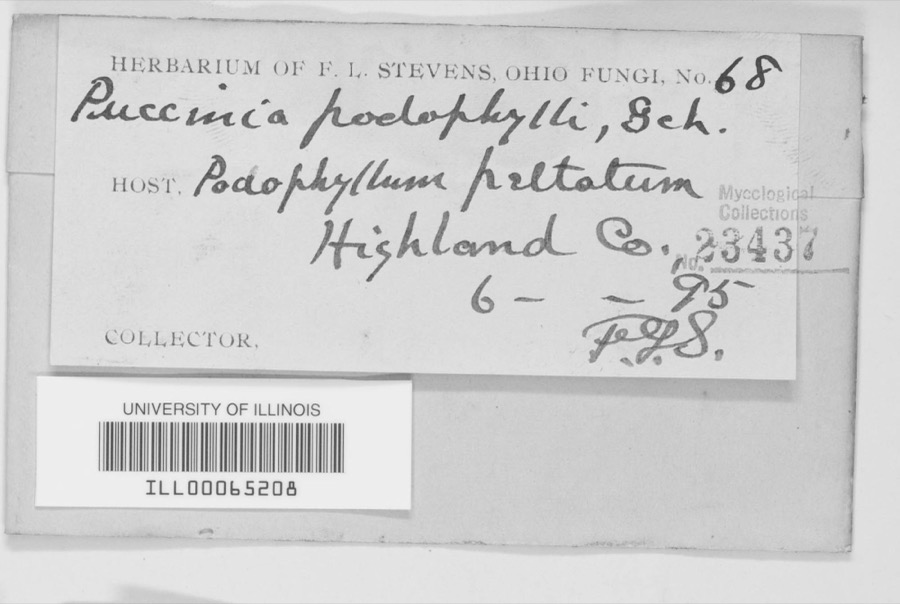 HERBARIUM OF F. L. STEVENS, OHIO FUNGI, No. 68
Puccinia podophylli, Sch.
HOST, Podophyllum peltatum
Highland Co.
Mycological
Collections
No. 23437
6 - - 95
COLLECTOR, F.L.S.
UNIVERSITY OF ILLINOIS
ILL00065208